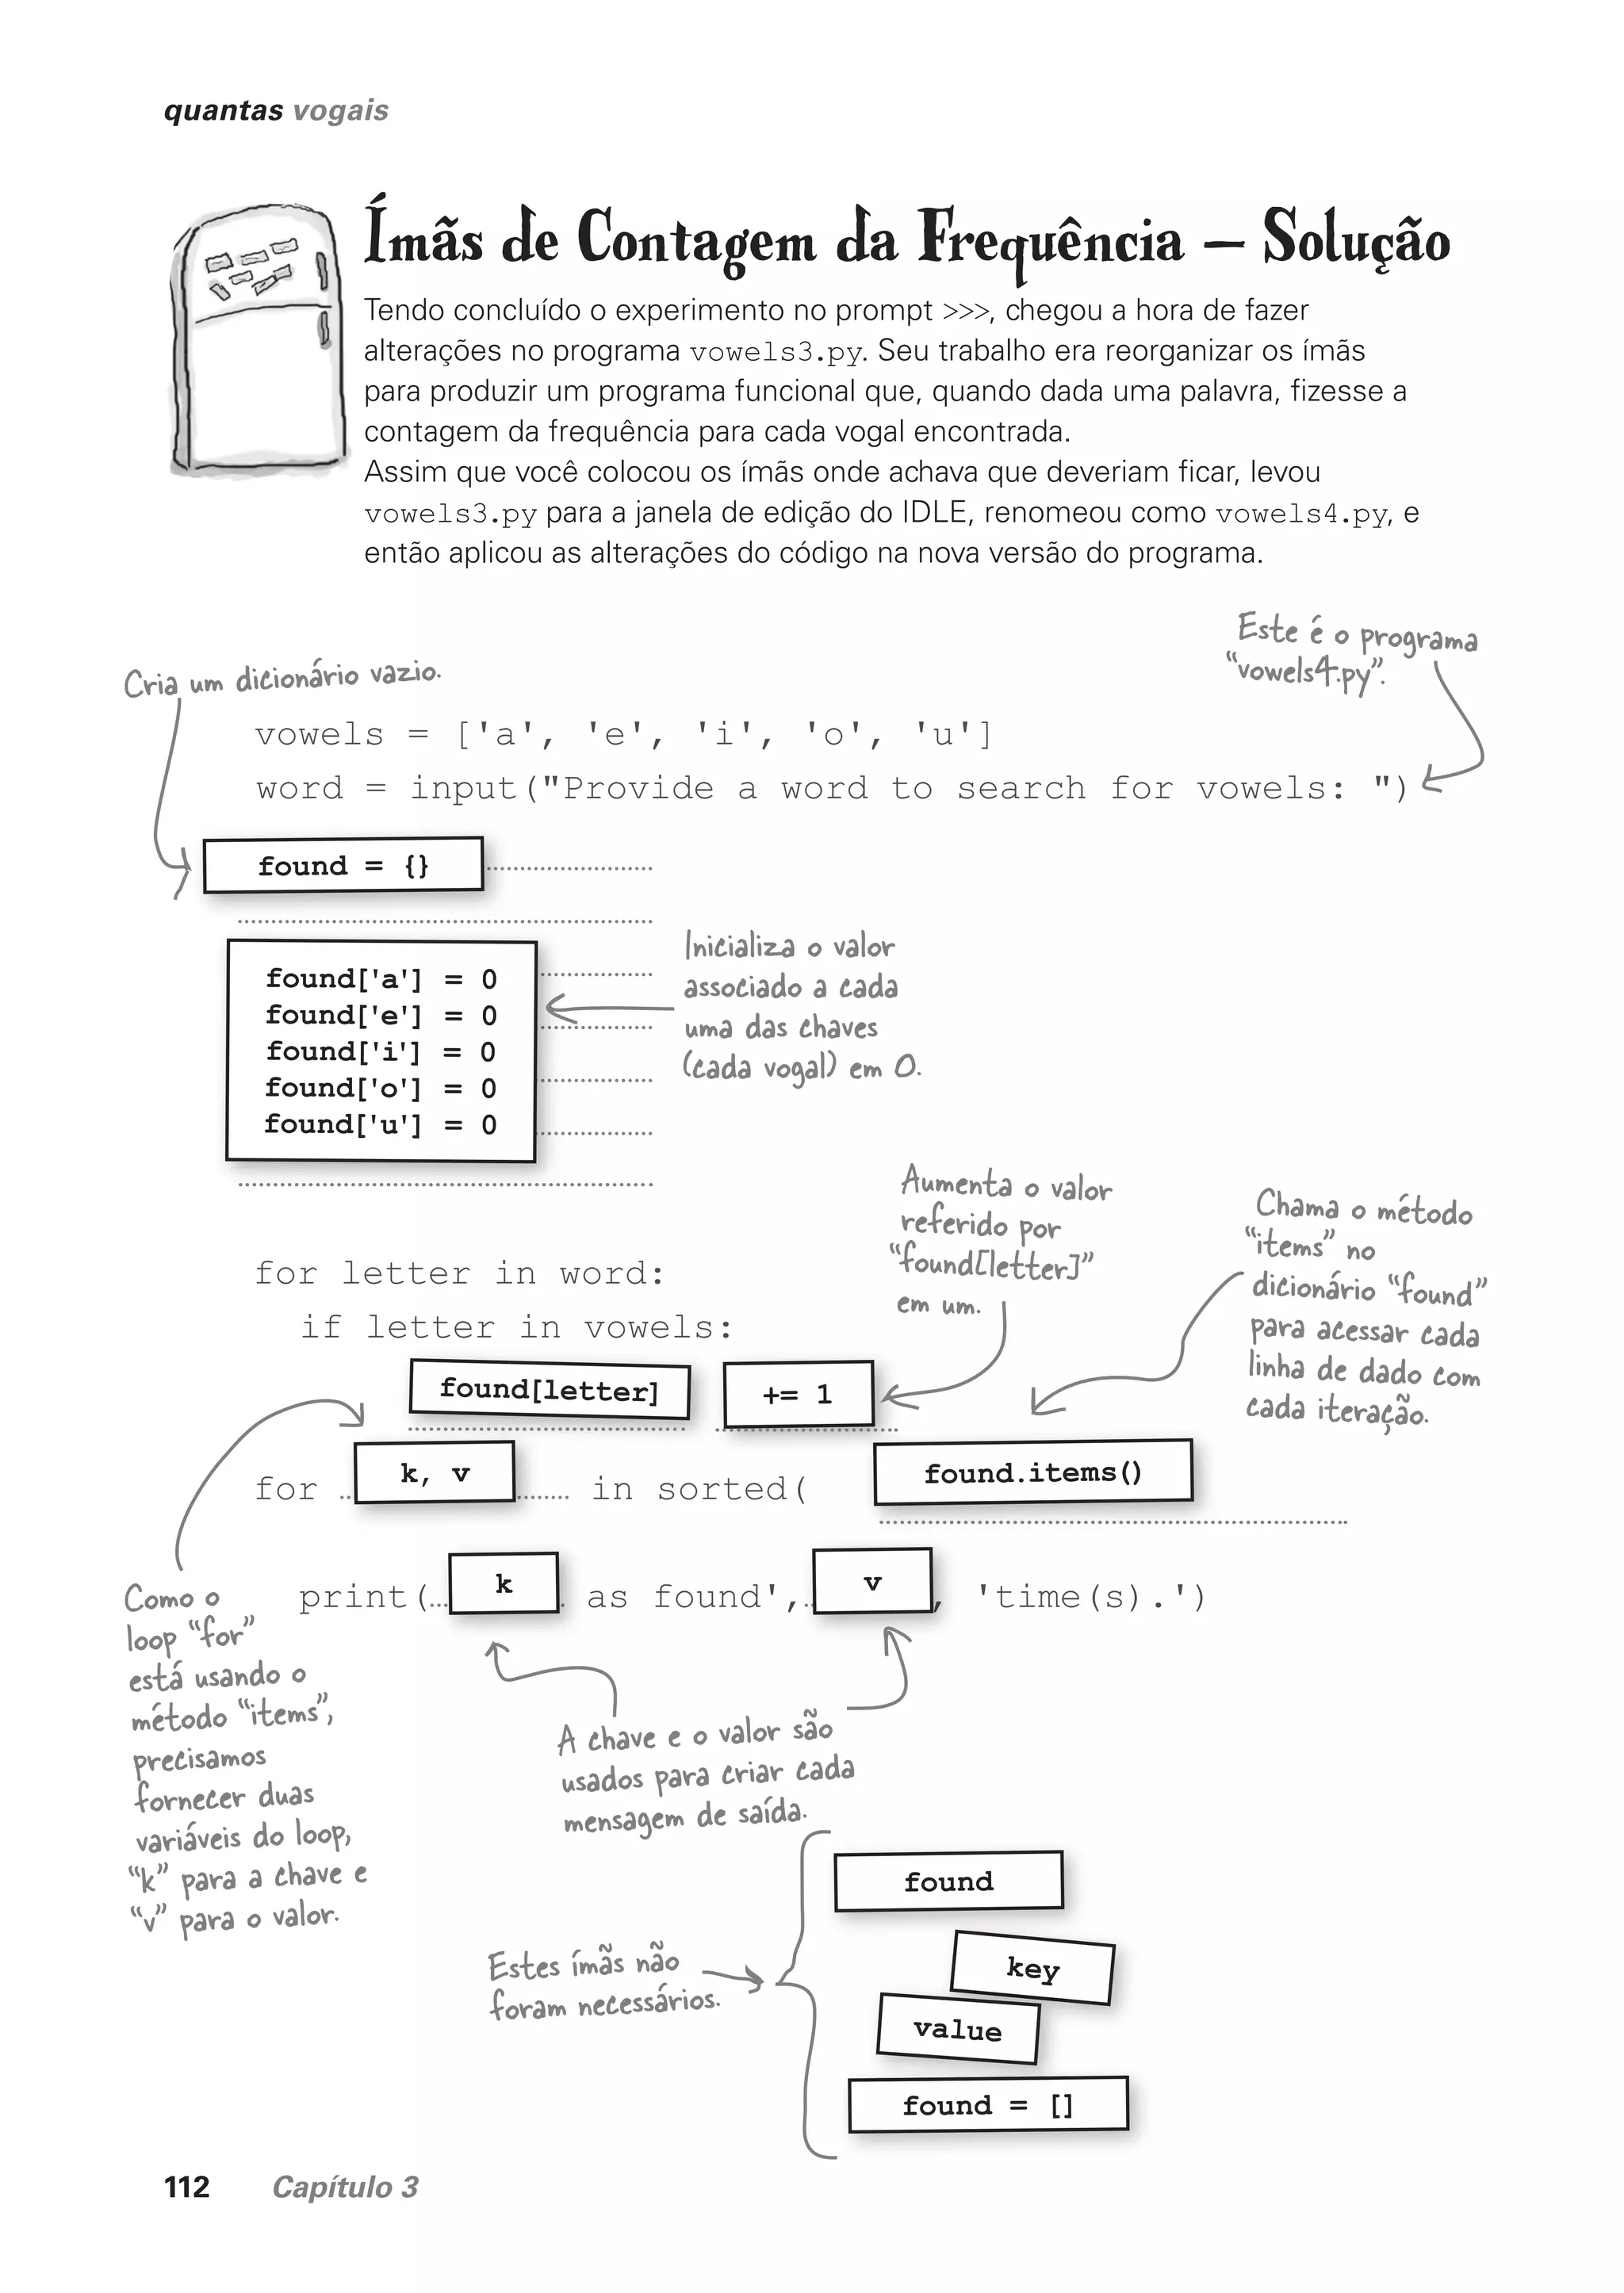 quantas vogais
Ímãs de Contagem da Frequência – Solução
Tendo concluído o experimento no prompt >>>, chegou a hora de fazer
alterações no programa vowels3.py. Seu trabalho era reorganizar os ímãs
para produzir um programa funcional que, quando dada uma palavra, fizesse a
contagem da frequência para cada vogal encontrada.
Assim que você colocou os ímãs onde achava que deveriam ficar, levou
vowels3.py para a janela de edição do IDLE, renomeou como vowels4.py, e
então aplicou as alterações do código na nova versão do programa.
Este é o programa
“vowels4.py”.
Cria um dicionário vazio.
vowels = ['a', 'e', 'i', 'o', 'u']
word = input("Provide a word to search for vowels: ")
found = {}
found['a'] = 0
found['e'] = 0
found['i'] = 0
found['o'] = 0
found['u'] = 0
Inicializa o valor
associado a cada
uma das chaves
(cada vogal) em 0.
Aumenta o valor
referido por
“found[letter]”
em um.
Chama o método
“items” no
dicionário “found”
para acessar cada
linha de dado com
cada iteração.
for letter in word:
if letter in vowels:
found[letter] += 1
for k, v in sorted( found.items()
print( k as found', v , 'time(s).')
Como o
loop “for”
está usando o
método “items”,
precisamos
fornecer duas
variáveis do loop,
“k” para a chave e
“v” para o valor.
A chave e o valor são
usados para criar cada
mensagem de saída.
Estes ímãs não
foram necessários.
found
key
value
found = []
112 Capítulo 3